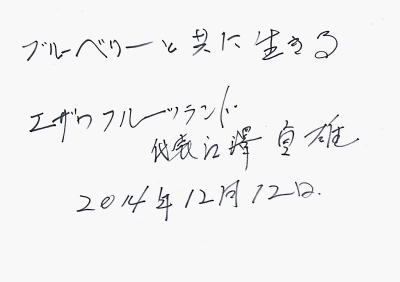 ブルーベリーと共に生きる
エザワフルーツランド
代表江澤貞雄
2014年12月12日.